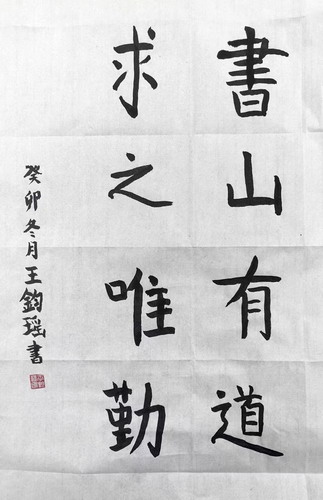 書山有道
求之唯勤
癸卯冬月王鈞瑶書